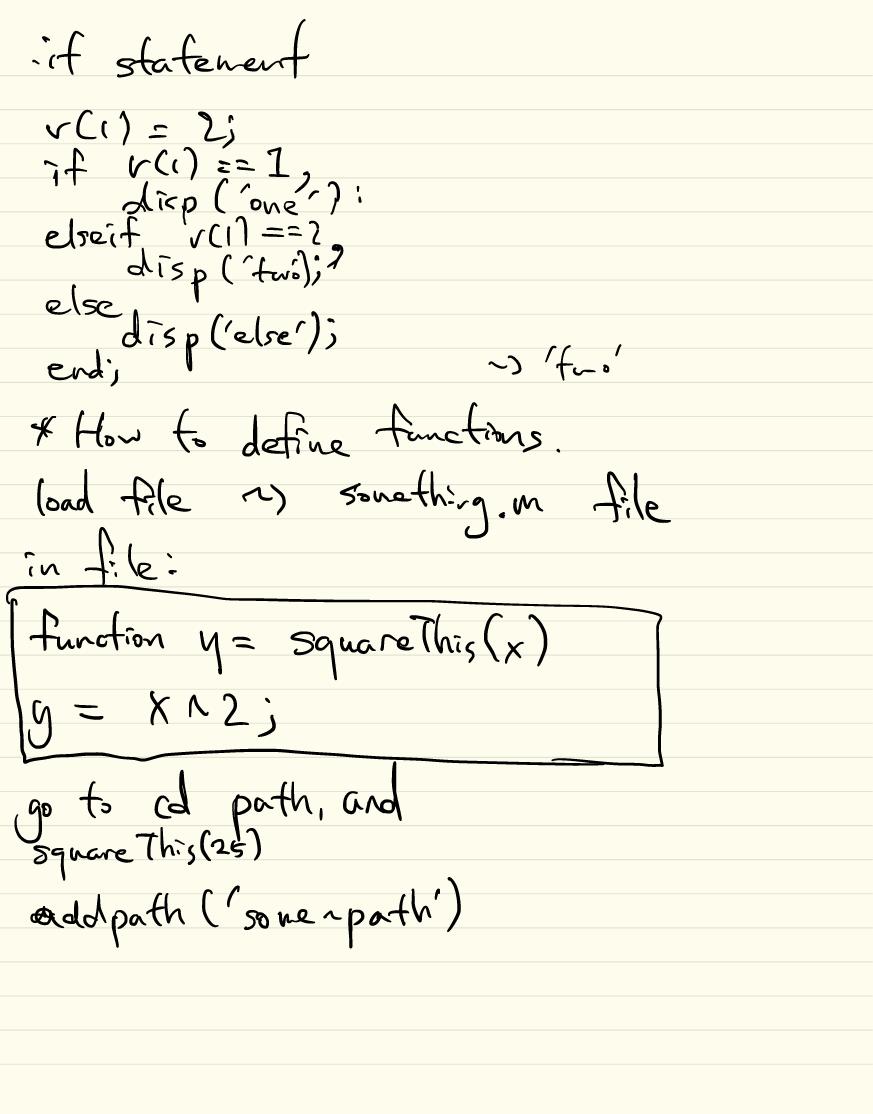 if statement
v(1) = 2;
if v(1) == 1,
disp ('one');
elseif v(1) == 2,
disp ('two');
else
disp('else');
end;
~> 'two'
* How to define functions.
load file ~> something.m file
in file:
function y = squareThis(x)
y = x^2;
go to cd path, and
squareThis(25)
addpath ('some~path')